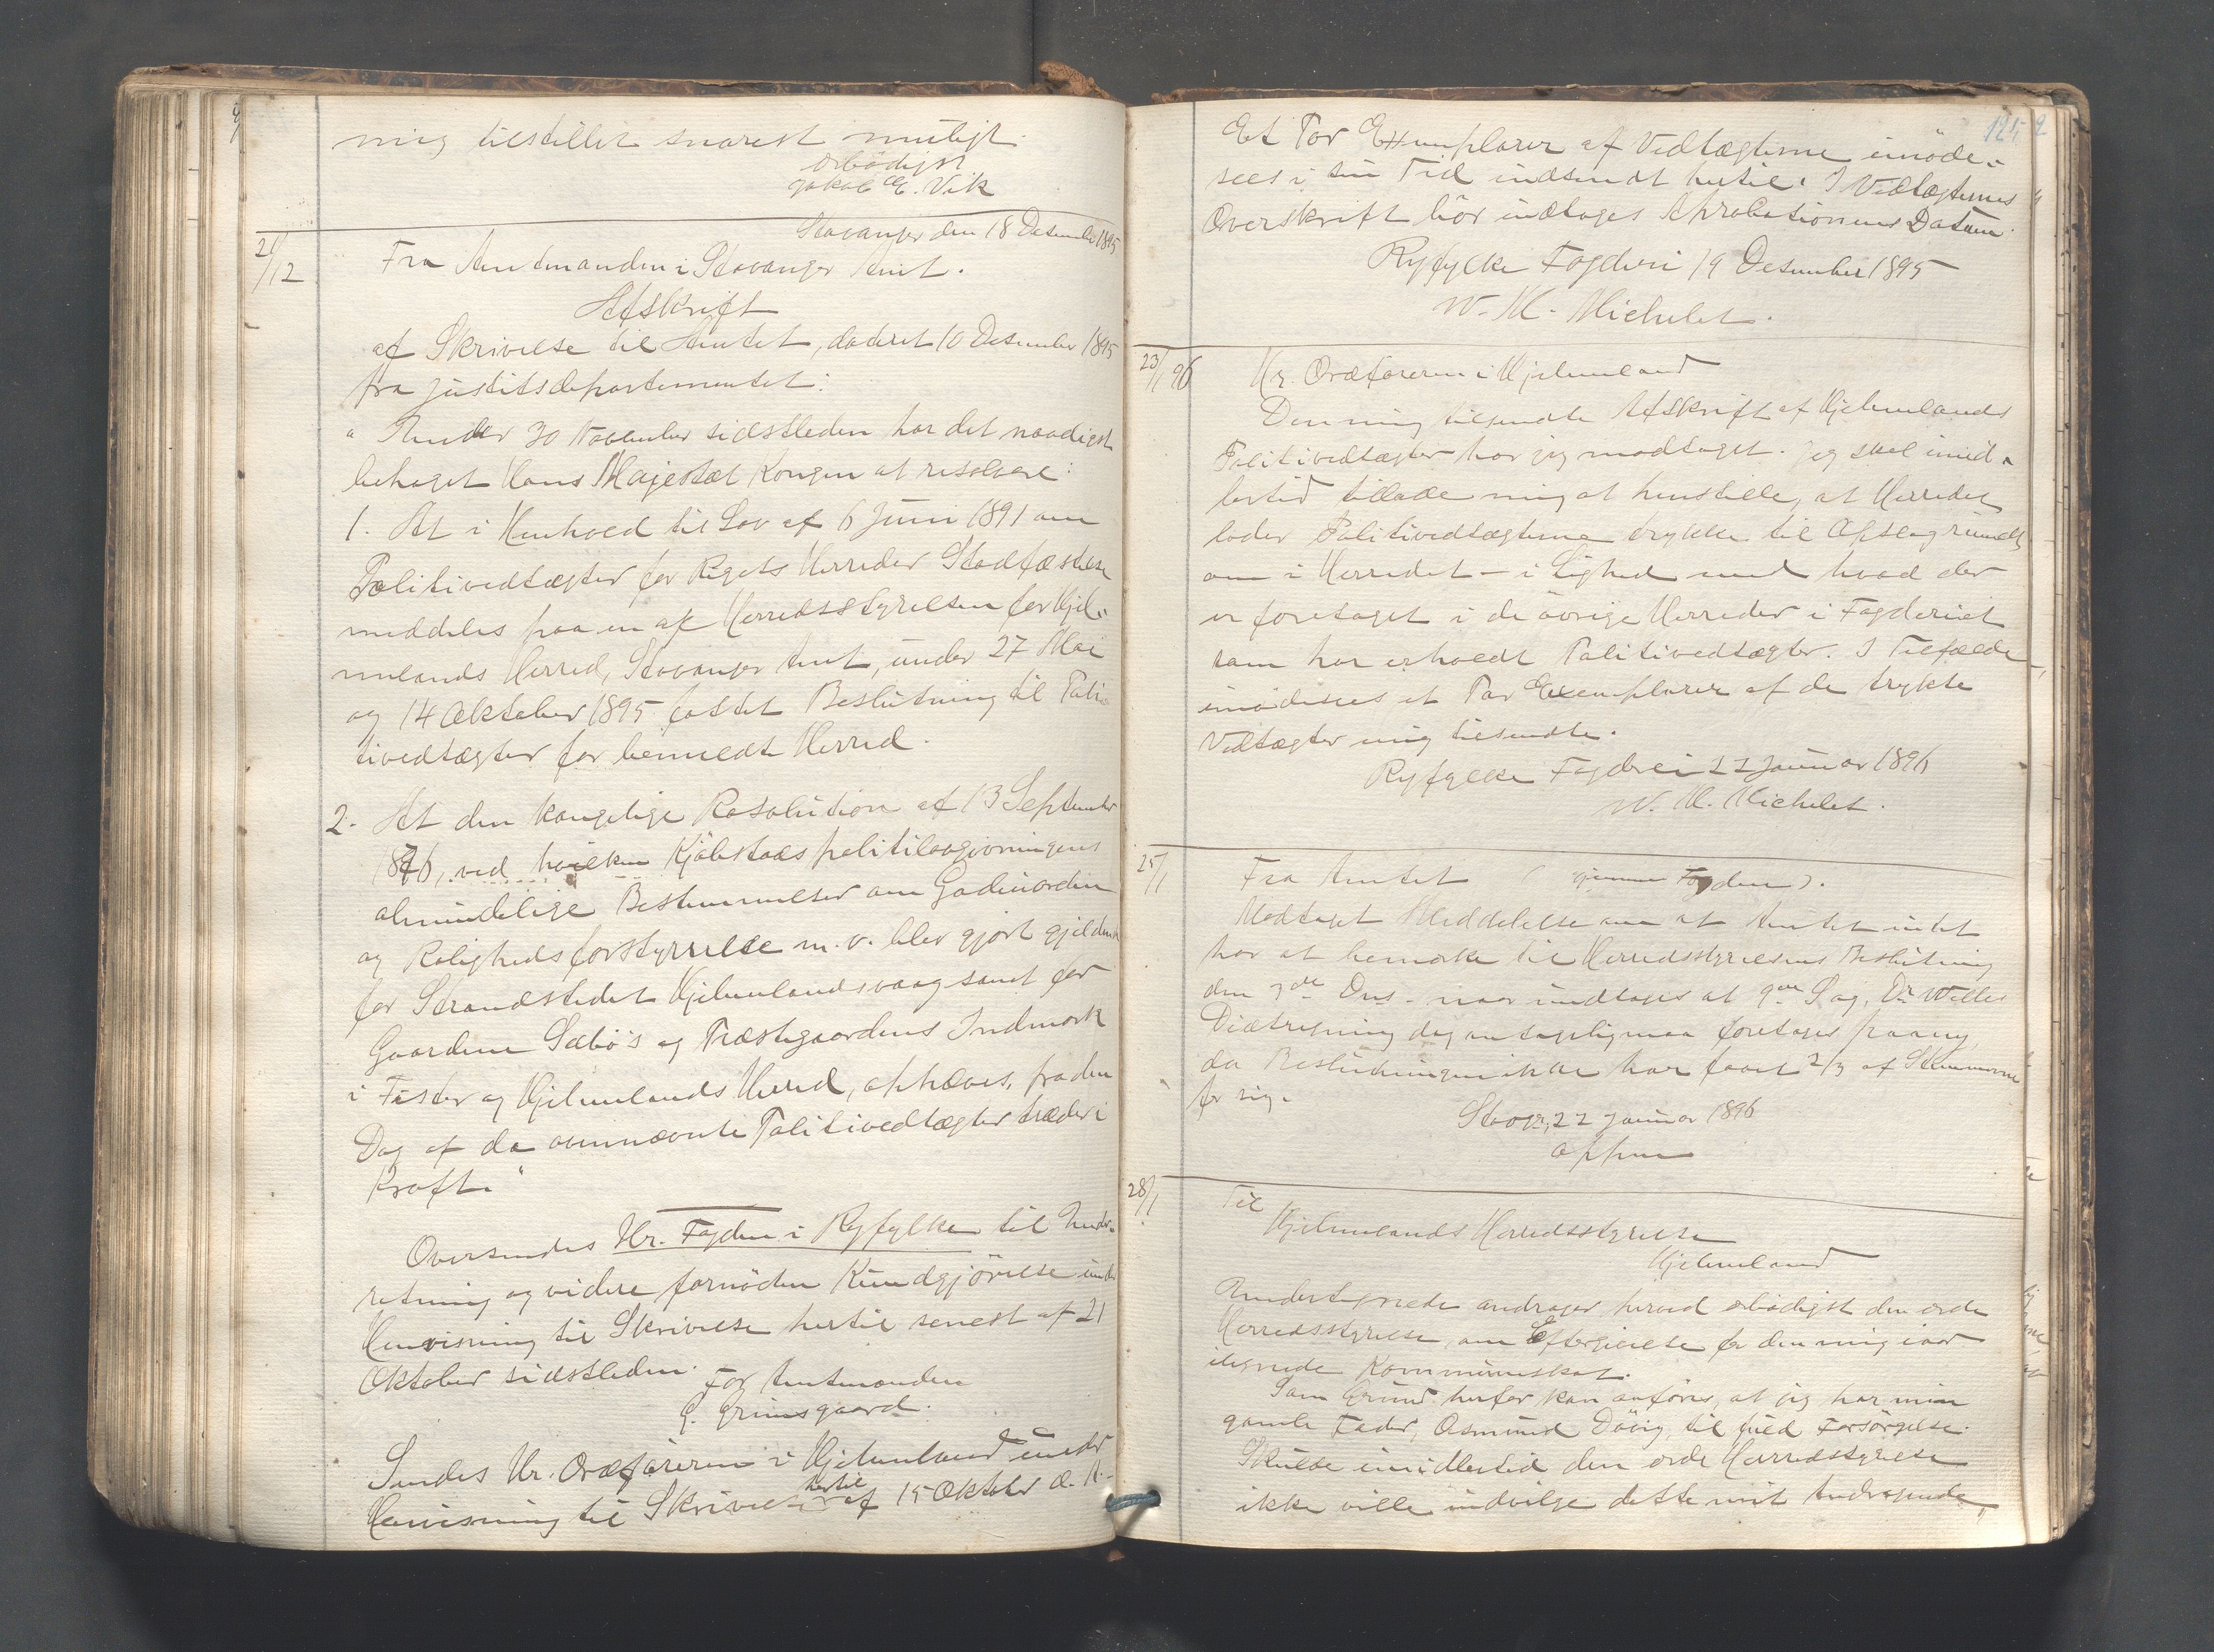 mig tilstillet snarest muligt.
Ærbödigst
Jakob E. Vik
Stavanger den 18 Desember 1895
21/12
Fra Amtmanden i Stavanger Amt.
Afskrift
af Skrivelse til Amtet, dateret 10 Desember 1895
fra Justitsdepartementet:
"Under 30 November sidstleden har det naadigst
behaget Hans Majestæt Kongen at resolvere:
1. At i Henhold til Lov af 6 Juni 1891 om
Politivedtægter for Rigets Herreder Stadfæstelse
meddeles paa en af Herredsstyrelsen for Hjel-
melands Herred, Stavanger Amt, under 27 Mai
og 14 Oktober 1895 fattet Beslutning til Poli-
tivedtægter for bemeldte Herred.
2. At den kongelige Resolution af 13 September
1876, ved hvilken Kjöbstadspolitilovgivningens
almindelige Bestemmelser om Gadeuorden
og Rolighedsforstyrrelse m. v. blev gjort gjeldende
for Strandstedet Hjelmelandsvaag samt for
Gaardene Sæbö's og Præstegaardens Indmark
i Fister og Hjelmelands Herred, ophæves, fra den
Dag af da ovennævnte Politivedtægter træder i
Kraft."
Oversendes Hr. Fogden i Ryfylke til Under-
retning og videre fornöden Kundgjörelse under
Henvisning til Skrivelse hertil senest af 21
Oktober sidstleden.
For Amtmanden
G. Grimsgaard.
Sendes Hr. Ordföreren i Hjelmeland under
Henvisning til Skrivelse hertil af 15 Oktober d. A.
125
Et Par Exemplarer af Vedtægterne imöde-
sees i sin Tid indsendt hertil. I Vedtægternes
Overskrift bör indtages Approbationens Datum.
Ryfylke Fogderi 19 Desember 1895
W. M. Michelet.
23/1 96
Hr. Ordföreren i Hjelmeland
Den mig tilsendte Afskrift af Hjelmelands
Politivedtægter har jeg modtaget. Jeg skal imid-
lertid tillade mig at henstille, at Herredet
lader Politivedtægterne trykke til Opslag rundt
om i Herredet - i Lighed med hvad der
er foretaget i de övrige Herreder i Fogderiet
som har erholdt Politivedtægter. I Tilfælde
imödesees et Par Exemplarer af de trykte
Vedtægter mig tilsendte.
Ryfylke Fogderi 22 Januar 1896
W. M. Michelet.
25/1
Fra Amtet (gjennem Fogden).
Modtaget Meddelelse om at Amtet intet
har at bemerke til Herredsstyrelsens Beslutning
den 7de Ds. - naar undtages at 9de Sag, Dr Willes
Diætregning dog antagelig maa foretages paany,
da Beslutningen ikke har faaet 2/3 af Stemmerne
for sig.
Stavgr, 22 Januar 1896
28/1
Til
Hjelmelands Herredsstyrelse
Hjelmeland
Undertegnede andrager herved ærbödigst den ærede
Herredsstyrelse om Eftergivelse for den mig iaar
ilignede Kommuneskat.
Som Grund herfor kan anföres, at jeg har min
gamle Fader, Osmund Dövig, til fuld Forsörgelse.
Skulde imidlertid den ærede Herredsstyrelse
ikke ville indvilge dette mit Andragende,